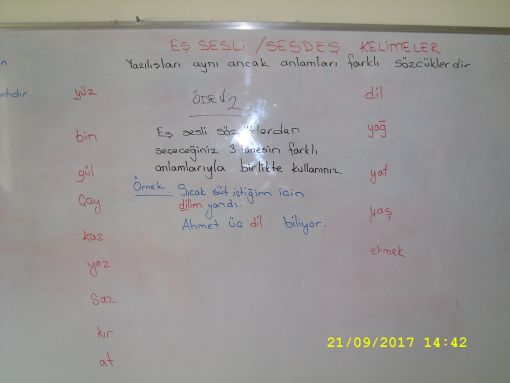 EŞ SESLİ / SESDEŞ KELİMELER
Yazılışları aynı ancak anlamları farklı sözcüklerdir
yüz
bin
gül
Çay
kaz
yaz
Saz
kır
at
ÖDEV 2
Eş sesli sözcüklerden
seçeceğiniz 3 tanesin farklı
anlamlarıyla birlikte kullanınız.
Örnek: Sıcak süt içtiğim için
dilim yandı.
Ahmet üç dil biliyor.
dil
yağ
yat
yaş
ekmek
21/09/2017 14:42